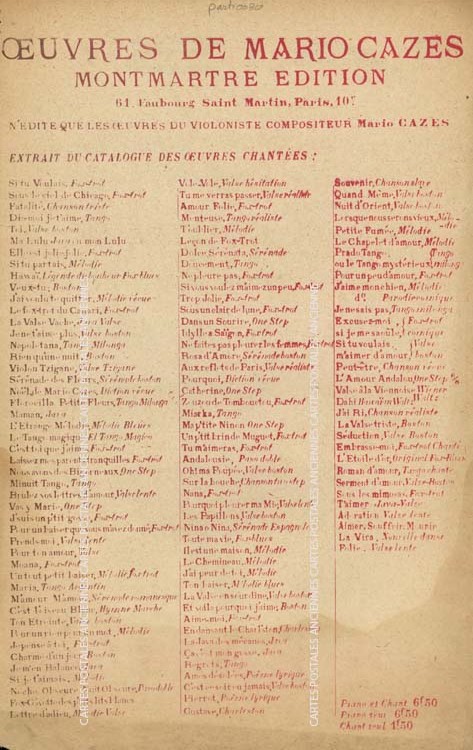 ŒUVRES DE MARIO CAZES
MONTMARTRE EDITION
61, Faubourg Saint Martin, Paris, 10e
N'EDITE QUE LES ŒUVRES DU VIOLONISTE COMPOSITEUR Mario CAZES
EXTRAIT DU CATALOGUE DES ŒUVRES CHANTÉES :
Si tu Voulais, Foxtrot
Sous le ciel de Chicago, Foxtrot
Fatalité, Chanson
Dis-moi je t'aime, Tango
Toi, Valse boston
Ma Lulu, mon Lulu
Elle est jolie-jolie, Foxtrot
Si tu partais, Mélodie
Hawaï, Légende Fox blues
Veux-tu, Boston
J'ai voulu te quitter, Mélodie rêvée
Le fox-trot du Canari, Foxtrot
La Valse Vache, Valse
Je ne t'aime plus, Valse boston
Napoletana, Tango Milonga
Rien qu'une nuit, Boston
Violon Tzigane, Valse Tzigane
Sérénade des Fleurs, Sérénade boston
Noël de Mario Cazes, Diction rêvée
Petites Fleurs, Tango Milonga
Maman, Java
L'Etrange Mélodie, Mélodie Blues
Le Tango magique, El Tango Magico
C'est toi que j'aime, Foxtrot
Laissez mes parents tranquilles, Foxtrot
Nous avons des Bigorneaux, One Step
Minuit Tango, Tango
Brulez vos lettres d'amour, Valse lente
Vas-y Marie, One Step
J'suis un p'tit gosse, Foxtrot
Pour un baiser que vous m'avez donné, Foxtrot
Prends-moi, Valse lente
Pour ton amour, Valse
Moana, Foxtrot
Un tout petit baiser, Mélodie foxtrot
Maria, Tango
M'amour M'amour, Sérénade romanesque
C'est l'oiseau Bleu, Hymne Marche
Ton Etreinte, Valse boston
Pour un rien pour un mot, Mélodie
Je pense à toi, Foxtrot
Charme d'un soir, Boston
Java
Si je t'aimais, Mélodie
Noche Obscura, Nuit Obscure, Pasodoble
Fox-Gavotte des petits Blancs
Lettre d'adieu, Mélodie Valse
Vole-Vole, Valse hésitation
Tu me verras passer, Valse réaliste
Amour Folie, Foxtrot
Menteuse, Tango réaliste
T'oublier, Mélodie
Leçon de Fox-Trot
Dolce Sérénata, Sérénade
Doucement, Tango
Ne pleure pas, Foxtrot
Si vous voulez m'aimer un peu, Foxtrot
Trop Jolie, Foxtrot
Sous un clair de lune, Foxtrot
Dans un Sourire, One Step
Idylle à Saïgon, Foxtrot
Ne faites pas pleurer les femmes, Foxtrot
Rosa d'Amore, Sérénade boston
Aux reflets de Paris, Valse réaliste
Pourquoi, Diction rêvée
Catherine, One Step
Zouzou de Tombouctou, Foxtrot
Miarka, Tango
May'tite Ninon, One Step
Un p'tit brin de Muguet, Foxtrot
Tu m'aimeras, Foxtrot
Andalousie, Pasodoble
Oh! ma Poupée, Valse boston
Sur la bouche, Chanson one step
Nana, Foxtrot
Pourquoi pleurer ma Mie, Valse lente
Les Papillons, Valse boston
Nina o Nina, Sérénade Espagnole
Toute ma vie, Fox blues
Il est une maison, Mélodie
Le Chemineau, Mélodie
J'ai peur de toi, Mélodie
Ton baiser, Mélodie blues
La Valse en sourdine, Valse boston
Et voilà pourquoi j'aime, Boston
Aimes-moi, Foxtrot
En dansant le Charleston, Charleston
La Java des mécanos, Java
Ça c'est mon gosse, Java
Regrets, Tango
Ames désolées, Poème lyrique
C'est ce soir ou jamais, Valse boston
Pierrot, Poème lyrique
Gustave, Charleston
Souvenir, Chanson slave
Quand Même, Valse boston
Nuit d'Orient, Valse boston
Lorsque nous serons vieux, Mélodie
Petite Fumée, Mélodie
Le Chapelet d'amour, Mélodie
Prado Tango, Tango
ou le Tango mystérieux, milonga
Pour un peu d'amour, Foxtrot
J'aime mon chien, Mélodie
do Parodie comique
Je ne sais pas, Tango milonga
Excusez-moi, Foxtrot
si je me saoûle, comique
Si tu voulais, Valse
m'aimer d'amour, boston
Peut-être, Chanson rêvée
L'Amour Andalou, One Step
Valse à la Viennoise, Wiener
Waltz
J'ai Ri, Chanson réaliste
La Valse triste, Boston
Séduction, Valse Boston
Embrasse-moi, Foxtrot Chanté
L'Etoile d'or, Original Fox-Blues
Roman d'amour, Tango chanté
Serment d'amour, Valse-Boston
Sous les mimosas, Foxtrot
T'aimer, Java-Valse
Adoration, Valse lente
Aimer, Souffrir, Mourir
La Vira, Nouvelle danse
Folie, Valse lente
Piano et Chant 6f50
Piano seul 6f50
Chant seul 1f50
CARTES POSTALES ANCIENNES